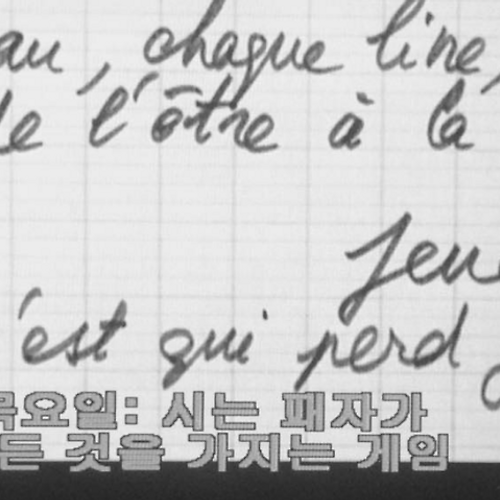 au, chaque line,
de l'être à la
Jeu
'est qui perd
목요일: 시는 패자가
든 것을 가지는 게임